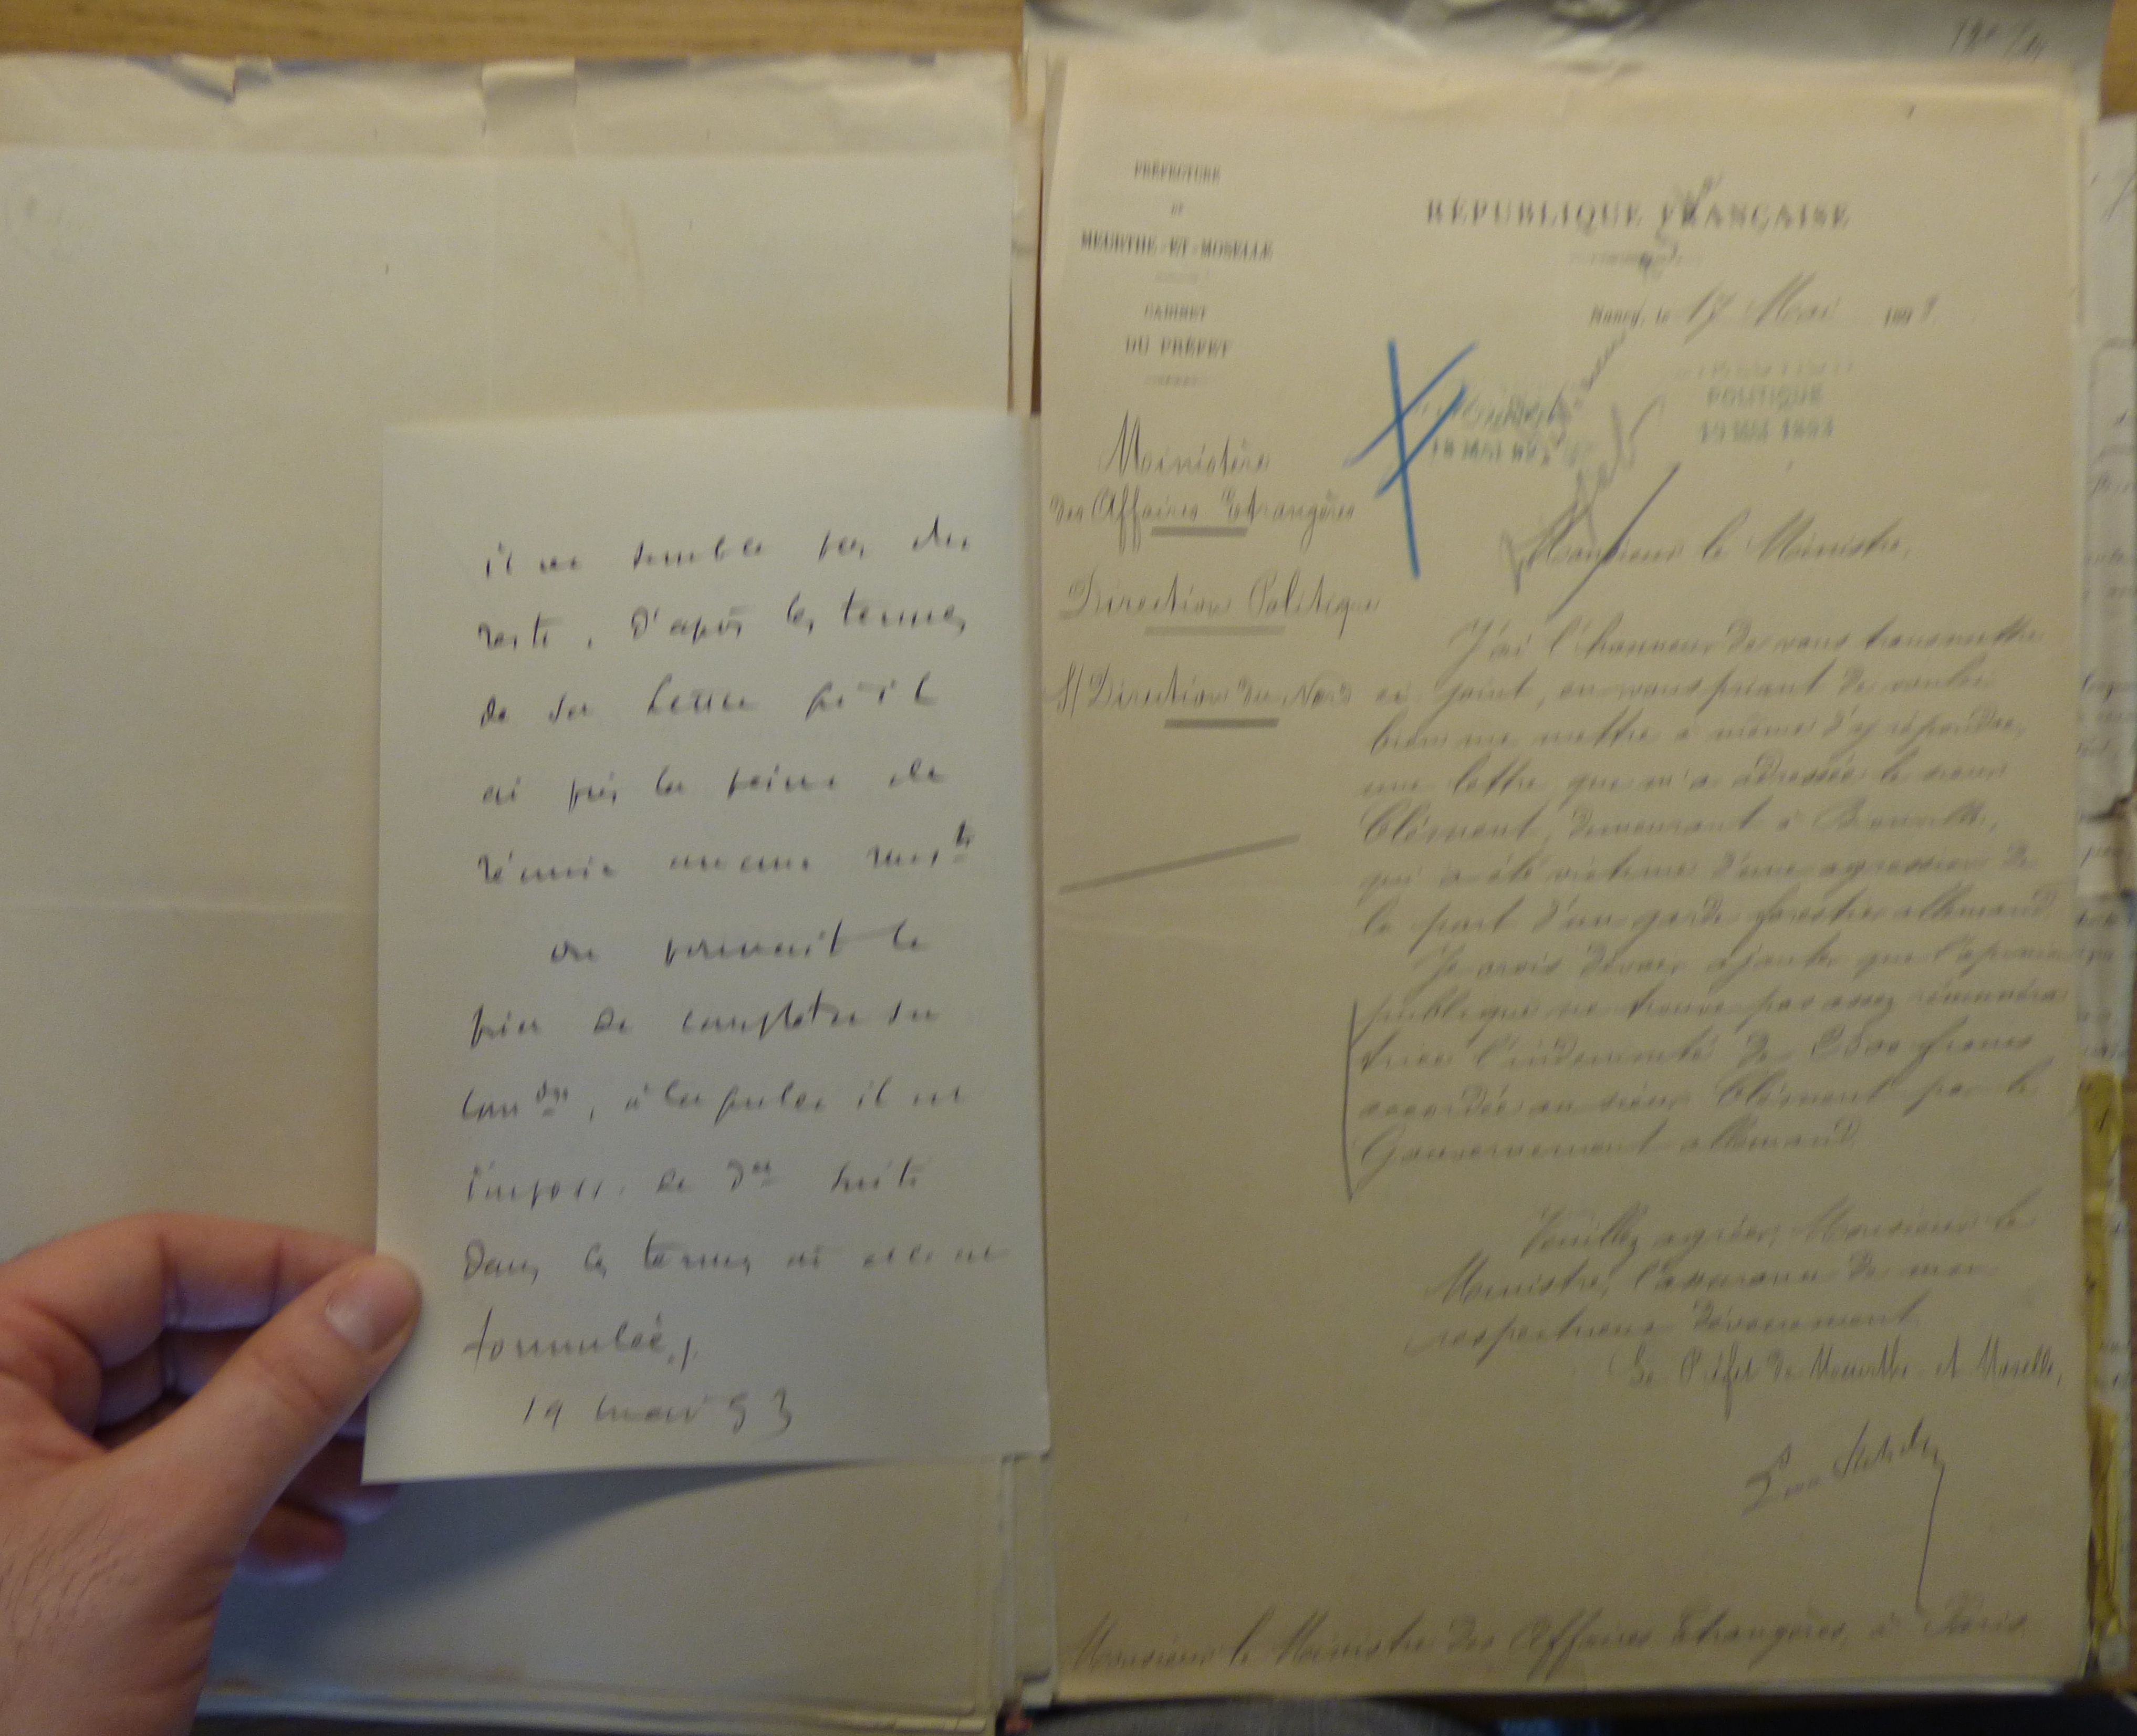 il ne semble pas du
reste, d'après les termes
de sa lettre qu'il
ai pris la peine de
réunir aucune
on pourrait le
prier de compléter sa
dde, à laquelle il est
imposs. de dner suite
dans les termes où elle est
formulée./.
19 mai 93
PRÉFECTURE
DE
MEURTHE-ET-MOSELLE
CABINET
DU PRÉFET
RÉPUBLIQUE FRANÇAISE
Nancy, le 17 Mai 1893
POLITIQUE
19 MAI 1893
18 MAI 93
Ministère
des Affaires Etrangères
Direction Politique
S/ Direction du Nord
Monsieur le Ministre,
J'ai l'honneur de vous transmettre
ci joint, en vous priant de vouloir
bien me mettre à même d'y répondre,
une lettre que m'a adressée le sieur
Clément, demeurant à
qui a été victime d'une agression de
la part d'un garde forestier allemand.
Je crois devoir ajouter que l'opinion
publique ne trouve pas assez rémunéra
trice l'indemnité de francs
accordée au sieur Clément par le
Gouvernement allemand.
Veuillez agréer, Monsieur le
Ministre, l'assurance de mon
respectueux dévouement.
Le Préfet de Meurthe et Moselle,
Monsieur le Ministre des Affaires Etrangères, à Paris